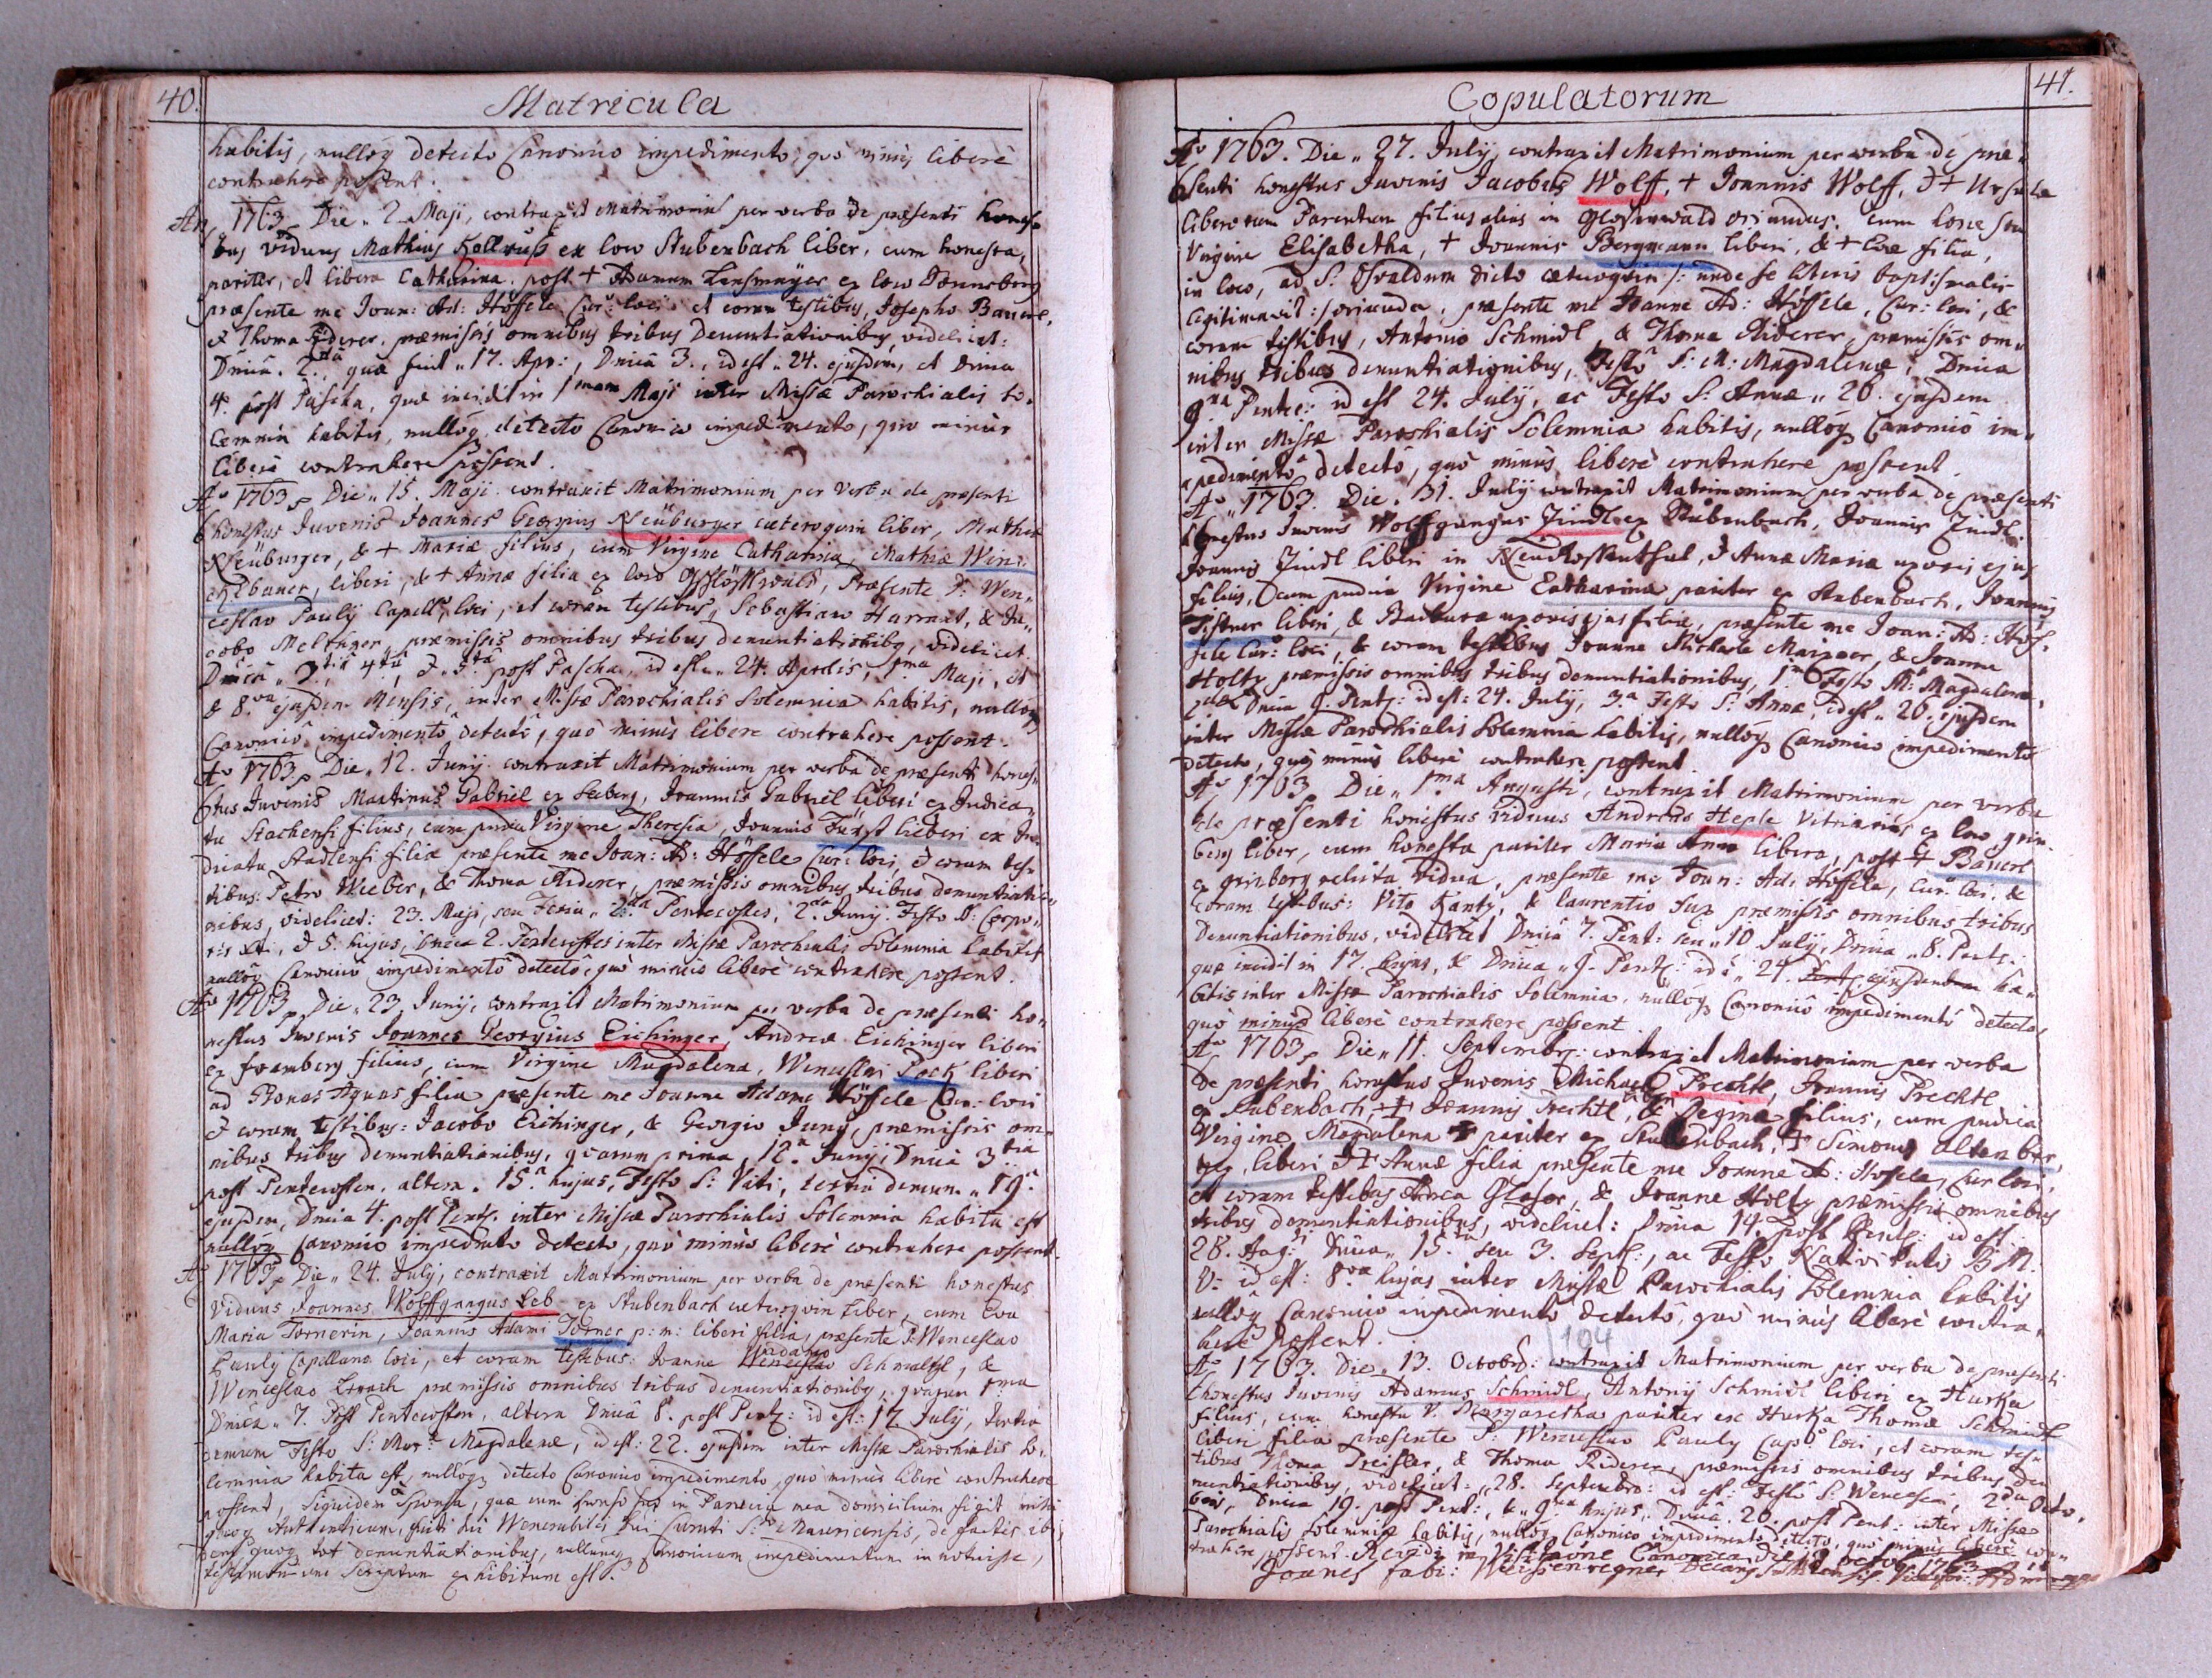 40.
Matricula
habitis, nulloq detecto Canonico impedimento, quo minus liberè
contrahere possent.
An 1763 Die 2 Maji, contraxit Matrimoniu per verba de præsenti hones
tus viduus Mathias Kollruß ex loco Stubenbach liber, cum honesta,
pariter, et libera Catharina, post + Adamum ex loco
præsente me Joan: Ad: Höffele Cur: loci et coram testibus, Josepho Bauerl,
& Thoma Riderer, præmissis omnibus tribus Denuntiationibus, videlicet:
Dnicâ 2dâ quæ fuit 17. Apr:, Dnicâ 3., id est 24. ejusdem, et Dnica
4. post Pascha, quæ incidit in 1mam Maji inter Missæ Parochialis so-
lemnia habitis, nulloq detecto Canonico impedimento, quo minus
liberè contrahere possent.
Ao 1763 Die 15. Maji contraxit Matrimonium per verba de præsenti
honestus Juvenis Joannes Georgius Neüburger cæteroquin liber, Mathiæ
Neüburger, & + Mariæ filius, cum Virgine Catharina, Mathiæ Win
liberi, & + Annæ filia ex loco Præsente P: Wen
ceslao Paulÿ Capell: loci, et coram testibus, Sebastiano Harrant, & Ja
cobo præmissis omnibus tribus denuntiationibq, videlicet
Dnicâ 3.tiâ 4.tâ, & 5.tâ post Pascha, id est 24. Aprilis, 1ma Maji, et
& 8.va ejusdem Mensis, inter Missæ Parochialis Solemnia habitis, nulloq
Canonicô impedimentô detectô, quò minus libere contrahere possent.
Ao 1763 Die 12. Junij contraxit Matrimonium per verba de præsenti hones
tus Juvenis Martinus Gabriel ex Seeberg, Joannis Gabriel liberi ex Judica
tu Stachensi filius, cum pudica Virgine Theresia, Joannis Fürst liberi ex Ju
dicatu Stadlensi filia præsente me Joan: Ad: Höffele Cur: loci, & coram tes
tibus: Petro Weeber, & Thoma Riderer, præmissis omnibus tribus denuntiatio
nibus, videlicet: 23. Maji, seu Feria 2.da Pentecostes, 2.da Junij Festo Corpo
ris Xti, & 5. hujus, Dnica 2. Pentecostes inter Missæ Parochialis Solemnia habitis
nulloq Canonicô impedimentô detectô, quò minus liberè contrahere possent.
Ao 1763 Die 23 Junij, contraxit Matrimonium per verba de præsenti ho
nestus Juvenis Joannes Georgius Eichinger, Andreæ Eichinger liberi
ex framberg filius, cum Virgine Magdalena, Wenceslai Pock liberi
ad Bonas Aquas filia præsente me Joanne Adamo Höffele Cur: loci
& coram testibus: Jacobo Eichinger, & Georgio Jung, præmissis om
nibus tribus denuntiationibus, quarum prima 12.a Junij Dnicâ 3tia
post Pentecosten, altera 15.a hujus, Festo S: Viti, tertia demum 19.a
ejusdem, Dnica 4. post Pent: inter Missæ Parochialis Solemnia habita est
nulloq Canonico impedimto detecto, quò minùs liberè contrahere possent.
Ao 1763 Die 24. July, contraxit Matrimonium per verba de præsenti honestus
Viduus Joannes Wolffgangus Leb ex Stubenbach cæteroquin Liber, cum Eva
Maria Tornerin, Joannis Adami Torner p: m: liberi filia, præsente P: Wenceslao
Pauly Capellano loci, et coram testibus: Joanne Wenceslao Adamo Schmaltzl, &
Wenceslao præmissis omnibus tribus denuntiationibq, quarum 1ma
Dnica 7. Post Pentecosten, altera Dnicâ 8. post Pent: id est: 17. July, tertia
demum Festo S: Mar: Magdalenæ, id est: 22. ejusdem inter Missæ Parochialis So-
lemnia habita est, nulloq detecto Canonico impedimento, quò minùs liberè contrahere
possent, Siquidem Sponsa, quæ cum in Parœcia mea domicilium figit
quoq Authenticum, Venerabilis Curati de factis ibi
dem quoq tot denuntiationibus, nullumq Canonicum impedimentum innotuisse,
testimonium Scriptum exhibitum est.
Copulatorum
41.
Ao 1763. Die 27. July, contraxit Matrimonium per verba de præ
senti honestus Juvenis Jacobus Wolff, + Joannis Wolff, & + Ursulæ
liberorum Parentum filius oriundus, cum
Virgine Elisabetha, + Joannis Bergmann liberi, & + Evæ filia,
in loco, ad S: Osvaldum dicto cæteroquin /: unde se literis baptismalis
legitimavit :/ oriunda, præsente me Joanne Ad: Höffele, Cur: loci, &
coram testibus, Antonio Schmidl, & Thoma Riderer, præmissis om
nibus tribus denuntiationibus, Festô S: M: Magdalenæ, Dnica
9.na Pentec: id est 24. July, ac Festo S: Annæ 26. ejusdem
inter Missæ Parochialis Solemnia habitis, nulloq Canonicô im
pedimentô detectô, quò minùs liberè contrahere possent.
Ao 1763. Die 31. July contraxit Matrimonium per verba de præsenti
honestus Juvenis Wolffgangus Zindl ex Stubenbach, Joannis Zindl
Joannis Zindl liberi in & Annæ Maria uxoris ejus
filius, cum pudica Virgine Catharina, pariter ex Stubenbach, Joannis
liberi, & Barbaræ uxoris ejus filia, præsente me Joan: Ad: Höf
fele Cur: loci, & coram testibus Joanne Michaele & Joanne
Holtz præmissis omnibus tribus denuntiationibus, 1ma Festo M: Magdalenæ,
2.da Dnica 9. Pent: id est: 24. July, 3.a Festo S: Annæ, id est 26. ejusdem
inter Missæ Parochialis Solemnia habitis, nulloq Canonico impedimento
detecto, quò minùs liberè contrahere possent.
Ao 1763 Die 1.ma Augusti, contraxit Matrimonium per verba
de præsenti honestus viduus Andreas Heple Vitriarius ex loco grin
berg liber, cum honesta pariter Maria Anna libera, post + Bauerl
ex grinberg relicta vidua, præsente me Joan: Ad: Höffele, Cur: loci, &
coram testibus: Vito Kantz, & laurentio fux præmissis omnibus tribus
Denuntiationibus, videlicet Dnicâ 7. Pent: seu 10 July, Dnica 8. Pent:
quæ incidit in 17. hujus, & Dnica 9. Pent: id è 24. ejusdem ha
bitis inter Missæ Parochialis Solemnia, nulloq Canonicô impedimentô detecto
quò minùs liberè contrahere possent.
Ao 1763 Die 11. Septembr: contraxit Matrimonium per verba
de præsenti honestus Juvenis Michael Prechtl, Joannis Prechtl
ex Stubenbach, + Joannis Prechtl liberi & Regina filius, cum pudica
Virgine Magdalena pariter ex Stubenbach, + Simonis altenbur
ger, liberi & + Annæ filia præsente me Joanne Ad: Höffele, Cur loci,
et coram testibus Andrea Glaser, & Joanne Holtz præmissis omnibus
tribus denuntiationibus, videlicet: Dnica 14. post Pent: id est
28. Aug: Dnica 15.ta seu 3. Sept:, ac Festo Nativitatis B. M.
V: id est: 8.va hujus inter Missæ Parochialis Solemnia habitis
nulloq Canonico impedimentô detectô, quò minùs liberè contra
here possent.
104
Ao 1763. Die 13. Octobr: contraxit Matrimonium per verba de præsenti
honestus Juvenis Adamus Schmidl, Antonij Schmidl liberi ex Hurka
filius, cum honesta V. Margaretha pariter ex Hurka Thomæ Schmidt
liberi filia præsente P: Wenceslao Pauly Cap: loci, et coram tes
tibus Thoma Preisler, & Thoma Riderer, præmissis omnibus tribus den
nuntiationibus, videlicet: 28. Septembr: id est: Festô S: Wencesl:, 2da Octo
bris, Dnica 19. post Pent:, & 9.na hujus, Dnicâ 20. post Pent: inter Missæ
Parochialis Solemniæ habitis, nulloq Canonico impedimento detecto, quò minùs liberè con
trahere possent. Revidi in Visitatione Canonica die 19 octob 1763
Joanes fabi: Weissenregner Decan